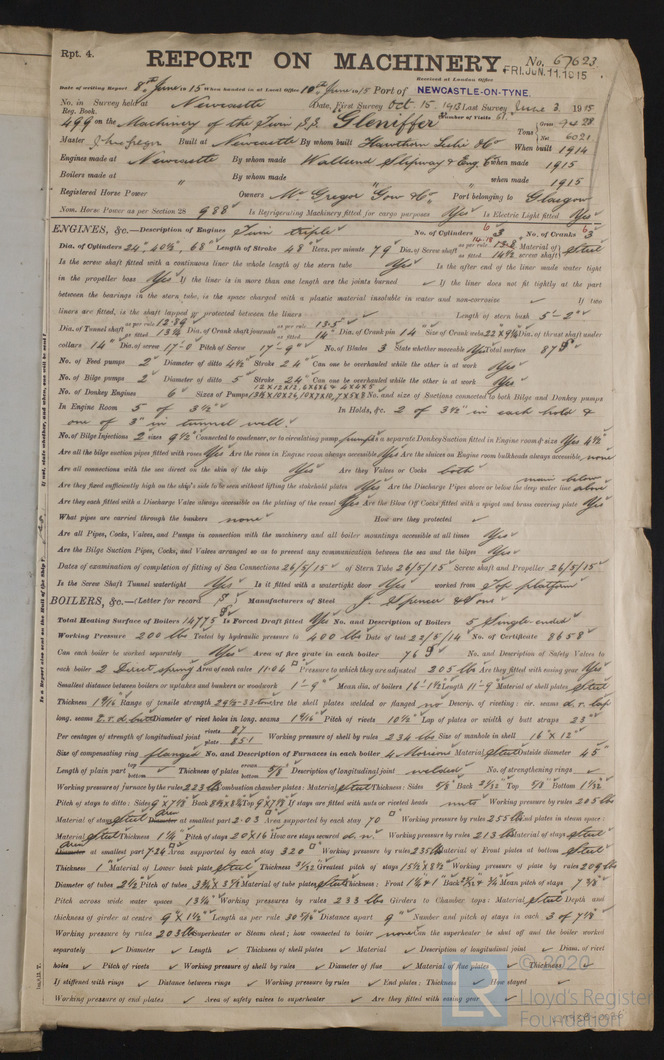 Rpt. 4.
REPORT ON MACHINERY.
No. 67623
Received at London Office
FRI. JUN. 11. 1915
Date of writing Report 8th June 1915 When handed in at Local Office 10th June 1915 Port of NEWCASTLE-ON-TYNE.
No. in Survey held at Newcastle Date, First Survey Oct. 15. 1913 Last Survey June 3. 1915
Reg. Book. Number of Visits
499 on the Machinery of the Twin S.S. Gleniffer Tons Gross 9428 Net 6021
Master J. McGregor Built at Newcastle By whom built Hawthorn Leslie & Co When built 1914
Engines made at Newcastle By whom made Wallsend Slipway & Eng. Co when made 1915
Boilers made at " By whom made " when made 1915
Registered Horse Power Owners Mc Gregor Gow & Co. Port belonging to Glasgow
Nom. Horse Power as per Section 28 988 Is Refrigerating Machinery fitted for cargo purposes Yes Is Electric Light fitted Yes
ENGINES, &c.—Description of Engines Twin triple No. of Cylinders 6 3 No. of Cranks 6 3
Dia. of Cylinders 24", 40½", 68" Length of Stroke 48" Revs. per minute 79 Dia. of Screw shaft as per rule as fitted 14½ Material of screw shaft Steel
Is the screw shaft fitted with a continuous liner the whole length of the stern tube Yes Is the after end of the liner made water tight
in the propeller boss Yes If the liner is in more than one length are the joints burned If the liner does not fit tightly at the part
between the bearings in the stern tube, is the space charged with a plastic material insoluble in water and non-corrosive If two
liners are fitted, is the shaft lapped or protected between the liners Length of stern bush 5'-2"
Dia. of Tunnel shaft as per rule 12.89 as fitted 13¼ Dia. of Crank shaft journals as per rule 13.5 as fitted 14" Dia. of Crank pin 14 Size of Crank webs 22 x 9¼ Dia. of thrust shaft under
collars 14" Dia. of screw 17-0 Pitch of Screw 17-9" No. of Blades 3 State whether moveable Yes Total surface 87
No. of Feed pumps 2 Diameter of ditto 4½ Stroke 24" Can one be overhauled while the other is at work Yes
No. of Bilge pumps 2 Diameter of ditto 5 Stroke 24" Can one be overhauled while the other is at work Yes
No. of Donkey Engines 6 Sizes of Pumps No. and size of Suctions connected to both Bilge and Donkey pumps
In Engine Room 5 of 3½" In Holds, &c. 2 of 3½" in each hold &
one of 3" in tunnel well.
No. of Bilge Injections 2 sizes 9½" Connected to condenser, or to circulating pump pumps Is a separate Donkey Suction fitted in Engine room & size Yes 4½"
Are all the bilge suction pipes fitted with roses Yes Are the roses in Engine room always accessible Yes Are the sluices on Engine room bulkheads always accessible none
Are all connections with the sea direct on the skin of the ship Yes Are they Valves or Cocks both
Are they fixed sufficiently high on the ship's side to be seen without lifting the stokehold plates Yes Are the Discharge Pipes above or below the deep water line main below above
Are they each fitted with a Discharge Valve always accessible on the plating of the vessel Yes Are the Blow Off Cocks fitted with a spigot and brass covering plate Yes
What pipes are carried through the bunkers none How are they protected
Are all Pipes, Cocks, Valves, and Pumps in connection with the machinery and all boiler mountings accessible at all times Yes
Are the Bilge Suction Pipes, Cocks, and Valves arranged so as to prevent any communication between the sea and the bilges Yes
Dates of examination of completion of fitting of Sea Connections 26/5/15 of Stern Tube 26/5/15 Screw shaft and Propeller 26/5/15
Is the Screw Shaft Tunnel watertight Yes Is it fitted with a watertight door Yes worked from Top platform
BOILERS, &c.—(Letter for record S) Manufacturers of Steel J. Spencer & Sons
Total Heating Surface of Boilers 14775 Is Forced Draft fitted Yes No. and Description of Boilers 5 Single ended
Working Pressure 200 lbs Tested by hydraulic pressure to 400 lbs Date of test 23/5/14 No. of Certificate 8658
Can each boiler be worked separately Yes Area of fire grate in each boiler 76 No. and Description of Safety Valves to
each boiler 2 Direct spring Area of each valve 11.04 Pressure to which they are adjusted 205 lbs Are they fitted with easing gear Yes
Smallest distance between boilers or uptakes and bunkers or woodwork 1'-9" Mean dia. of boilers 16'-1½ Length 11'-9" Material of shell plates Steel
Thickness 1 9/16 Range of tensile strength 29½-33 tons Are the shell plates welded or flanged no Descrip. of riveting: cir. seams d.r. lap
long. seams T.R.d. butt Diameter of rivet holes in long. seams 1 9/16" Pitch of rivets 10½" Lap of plates or width of butt straps 23"
Per centages of strength of longitudinal joint rivets 87 plate 85.1 Working pressure of shell by rules 234 lbs Size of manhole in shell 16" x 12"
Size of compensating ring flanged No. and Description of Furnaces in each boiler 4 Morison Material Steel Outside diameter 45"
Length of plain part top bottom Thickness of plates crown bottom 5/8" Description of longitudinal joint welded No. of strengthening rings
Working pressure of furnace by the rules 223 lbs Combustion chamber plates: Material Steel Thickness: Sides 5/8" Back 21/32 Top 5/8 Bottom
Pitch of stays to ditto: Sides 9 x 7⅞ Back Top 9 x 7⅞ If stays are fitted with nuts or riveted heads nuts Working pressure by rules 205 lbs
Material of stays Steel Area at smallest part 2.03 Area supported by each stay 70 Working pressure by rules 255 lbs End plates in steam space:
Material Steel Thickness 1¼ Pitch of stays 20 x 16 How are stays secured d.n. Working pressure by rules 213 lbs Material of stays Steel
Area at smallest part 7.24 Area supported by each stay 320 Working pressure by rules 235 lbs Material of Front plates at bottom Steel
Thickness 1" Material of Lower back plate Steel Thickness 31/32 Greatest pitch of stays Working pressure of plate by rules 209 lbs
Diameter of tubes 2½ Pitch of tubes 3¾ x 3⅝ Material of tube plates Steel Thickness: Front Back Mean pitch of stays
Pitch across wide water spaces 13¼" Working pressures by rules 233 lbs Girders to Chamber tops: Material Steel Depth and
thickness of girder at centre 9" x 1½" Length as per rule Distance apart 9" Number and pitch of stays in each 3 of 7⅞
Working pressure by rules 203 lbs Superheater or Steam chest; how connected to boiler none Can the superheater be shut off and the boiler worked
separately Diameter Length Thickness of shell plates Material Description of longitudinal joint Diam. of rivet
holes Pitch of rivets Working pressure of shell by rules Diameter of flue Material of flue plates Thickness
If stiffened with rings Distance between rings Working pressure by rules End plates: Thickness How stayed
Working pressure of end plates Area of safety valves to superheater Are they fitted with easing gear
© 2020
LR
Lloyd's Register
Foundation